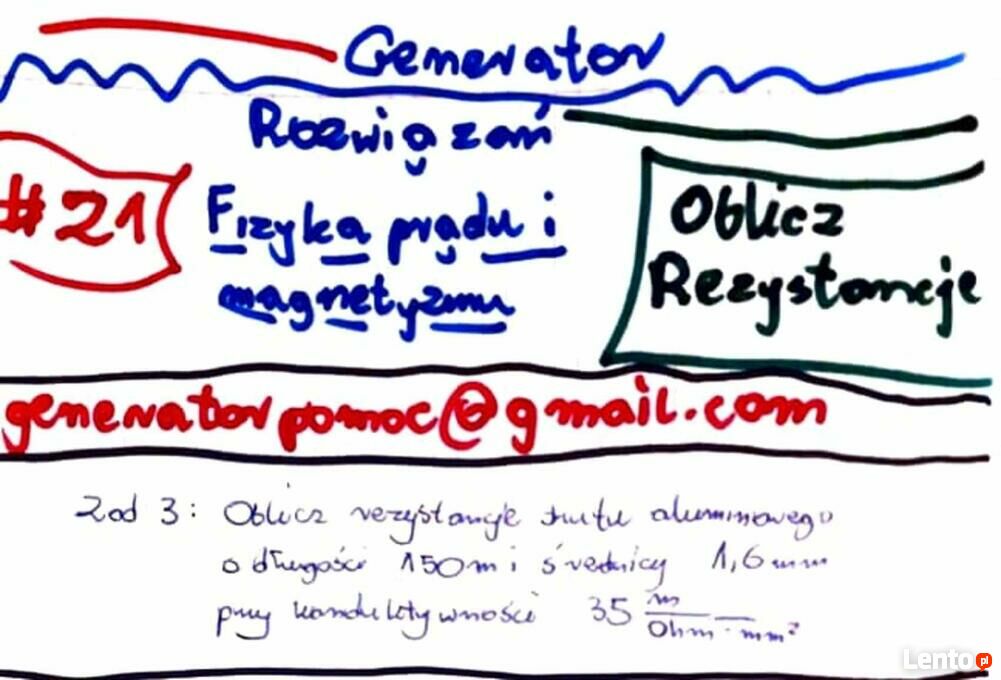 Generator
Rozwiązań
#21
Fizyka prądu i
magnetyzmu
Oblicz
Rezystancję
generatorpomoc@gmail.com
Zad 3: Oblicz rezystancję drutu aluminiowego
o długości 150m i średnicy 1,6mm
przy konduktywności 35 m/Ohm·mm²
Lento.pl